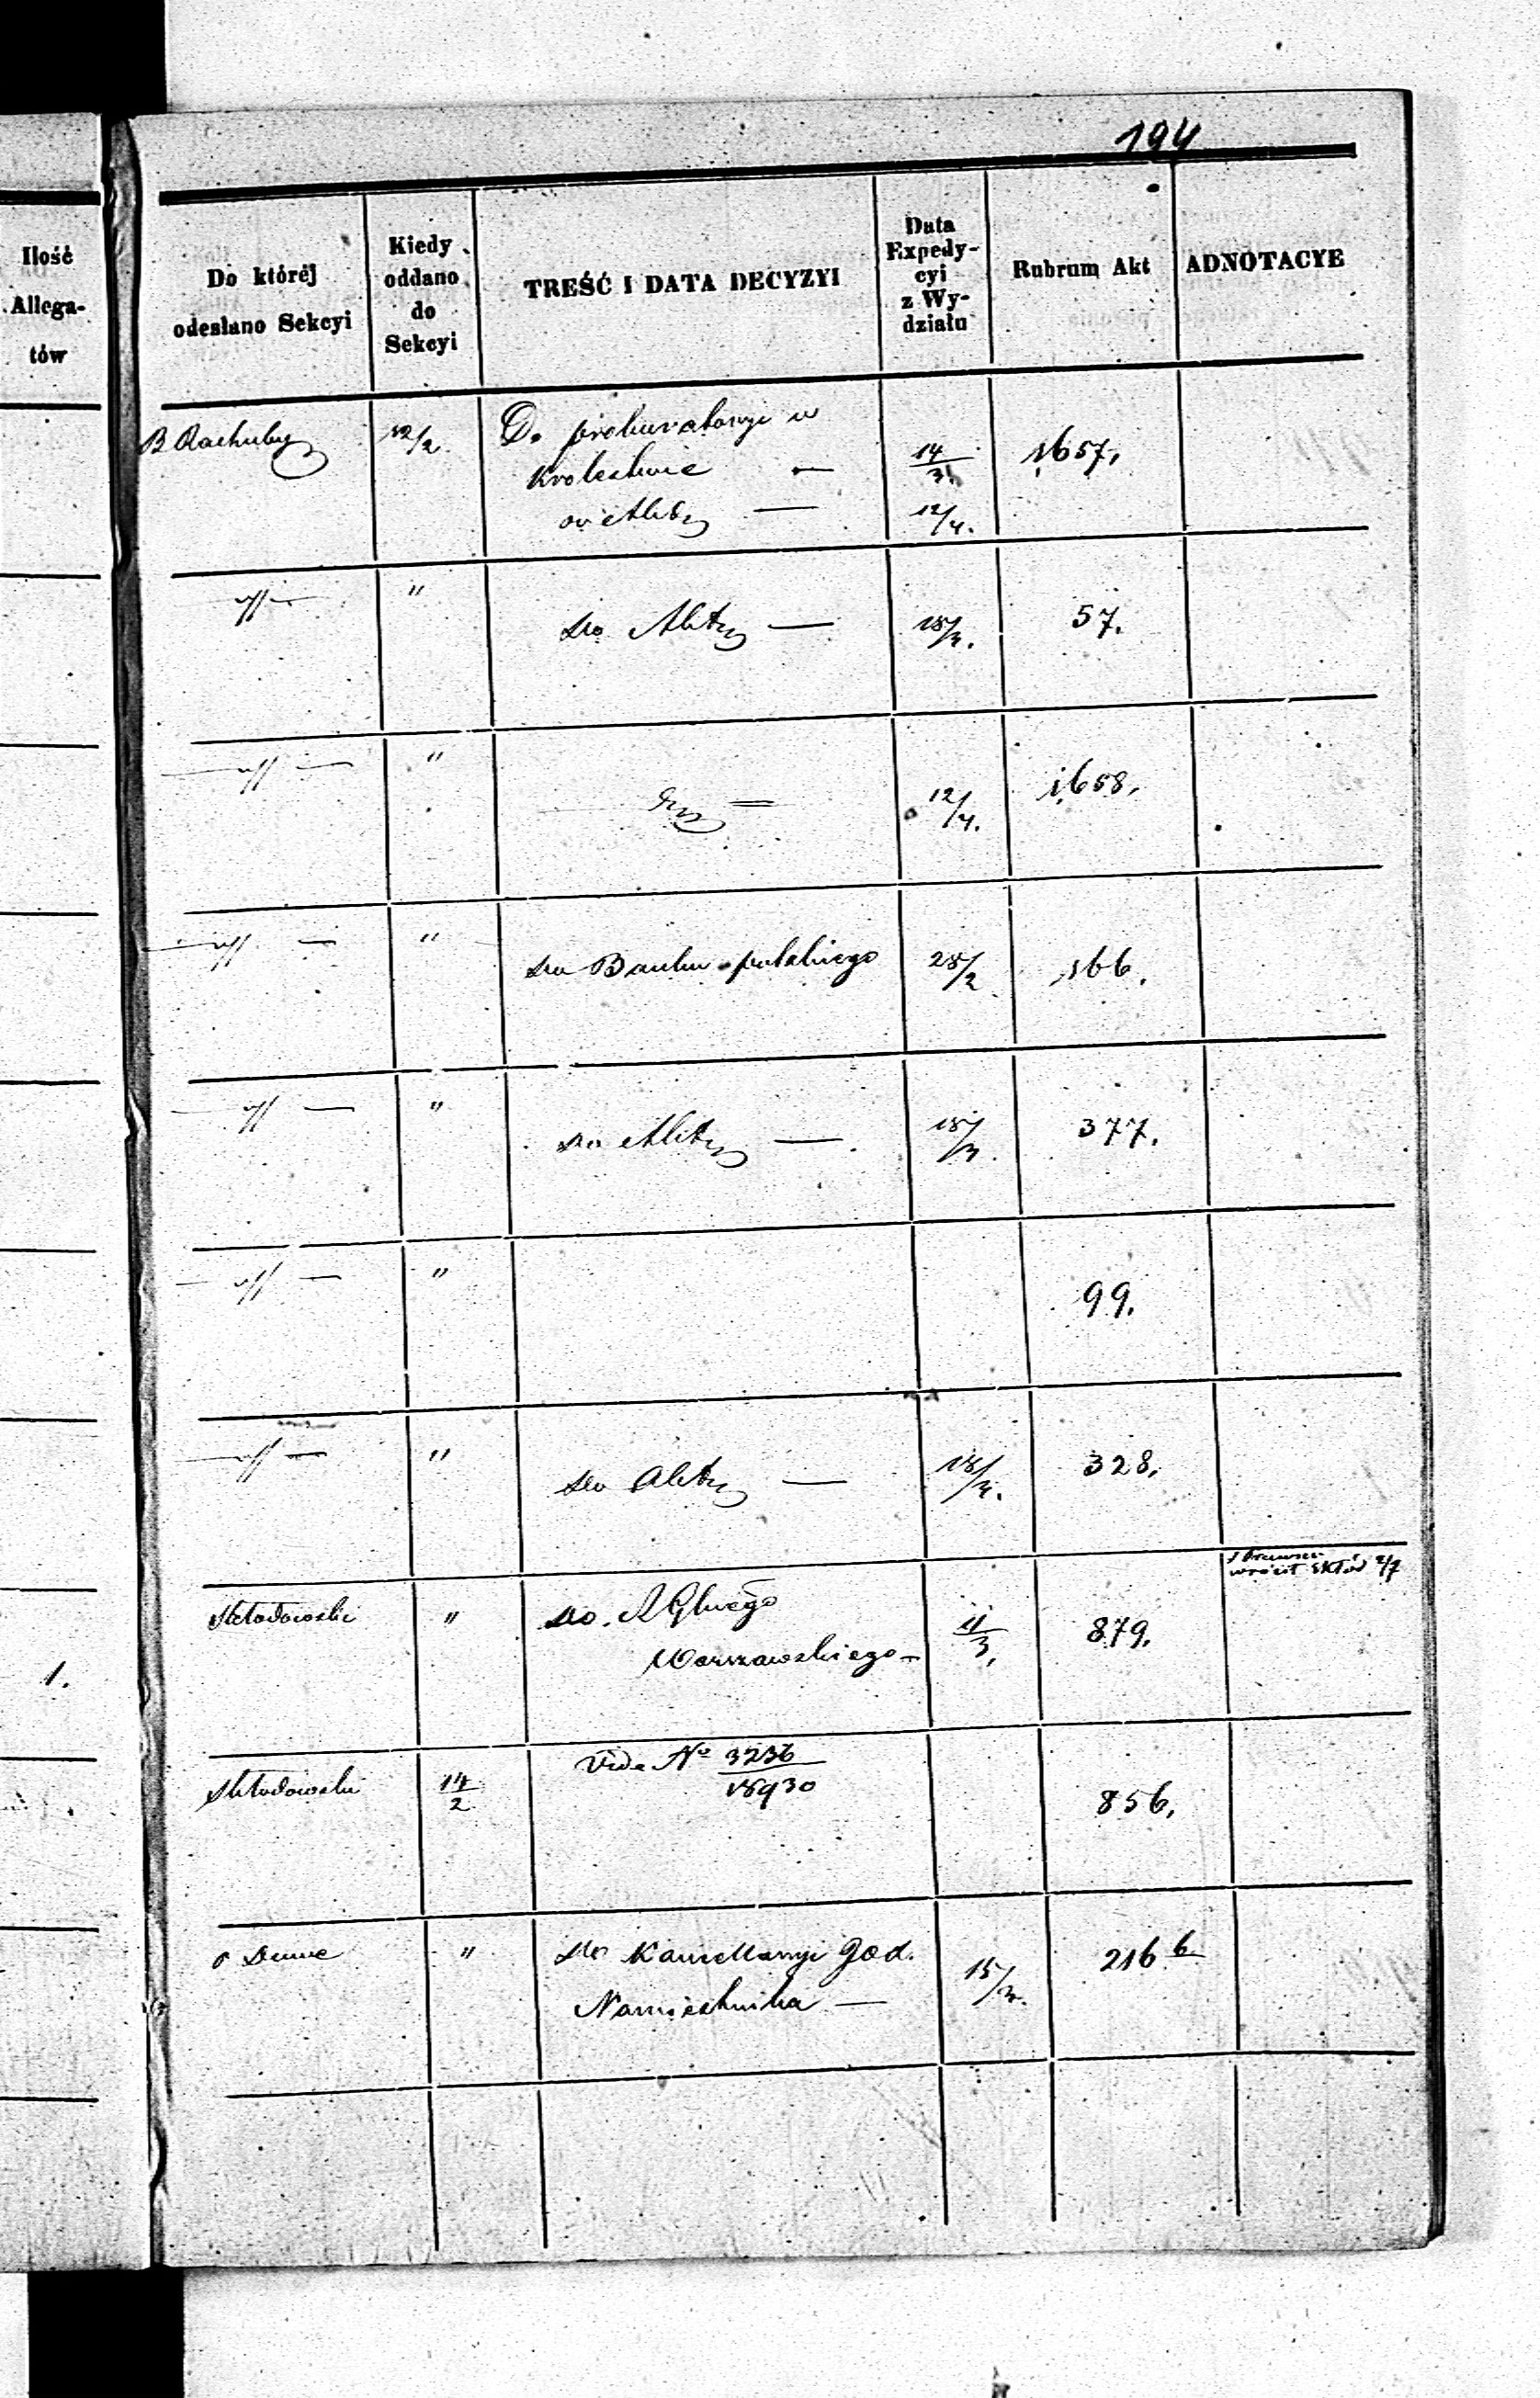 194
Ilość
Allega-
tów
Do któréj
odesłano Sekcyi
Kiedy
oddano
do
Sekcyi
TREŚĆ I DATA DECYZYI
Data
Expedy-
cyi
z Wy-
działu
Rubrum Akt
ADNOTACYE
B Rachuby 12/2 Do prokuratoryi w
Krolestwie — 14/3. 1657.
do Akt — 12/4.
" do Akt — 18/3. 57.
" 12/4. 1658.
" do Banku polskiego 28/2 166.
" do Akt — 18/3. 377.
" 99.
" do Akt — 18/3. 328.
wrócił 2/7
Skłodowski " do
Warszawskiego — 11/3, 879.
1.
Skłodowski 14/2 Vide No 3236/18930 856,
" do Kancellaryi
Namiestnika — 15/3. 216 b